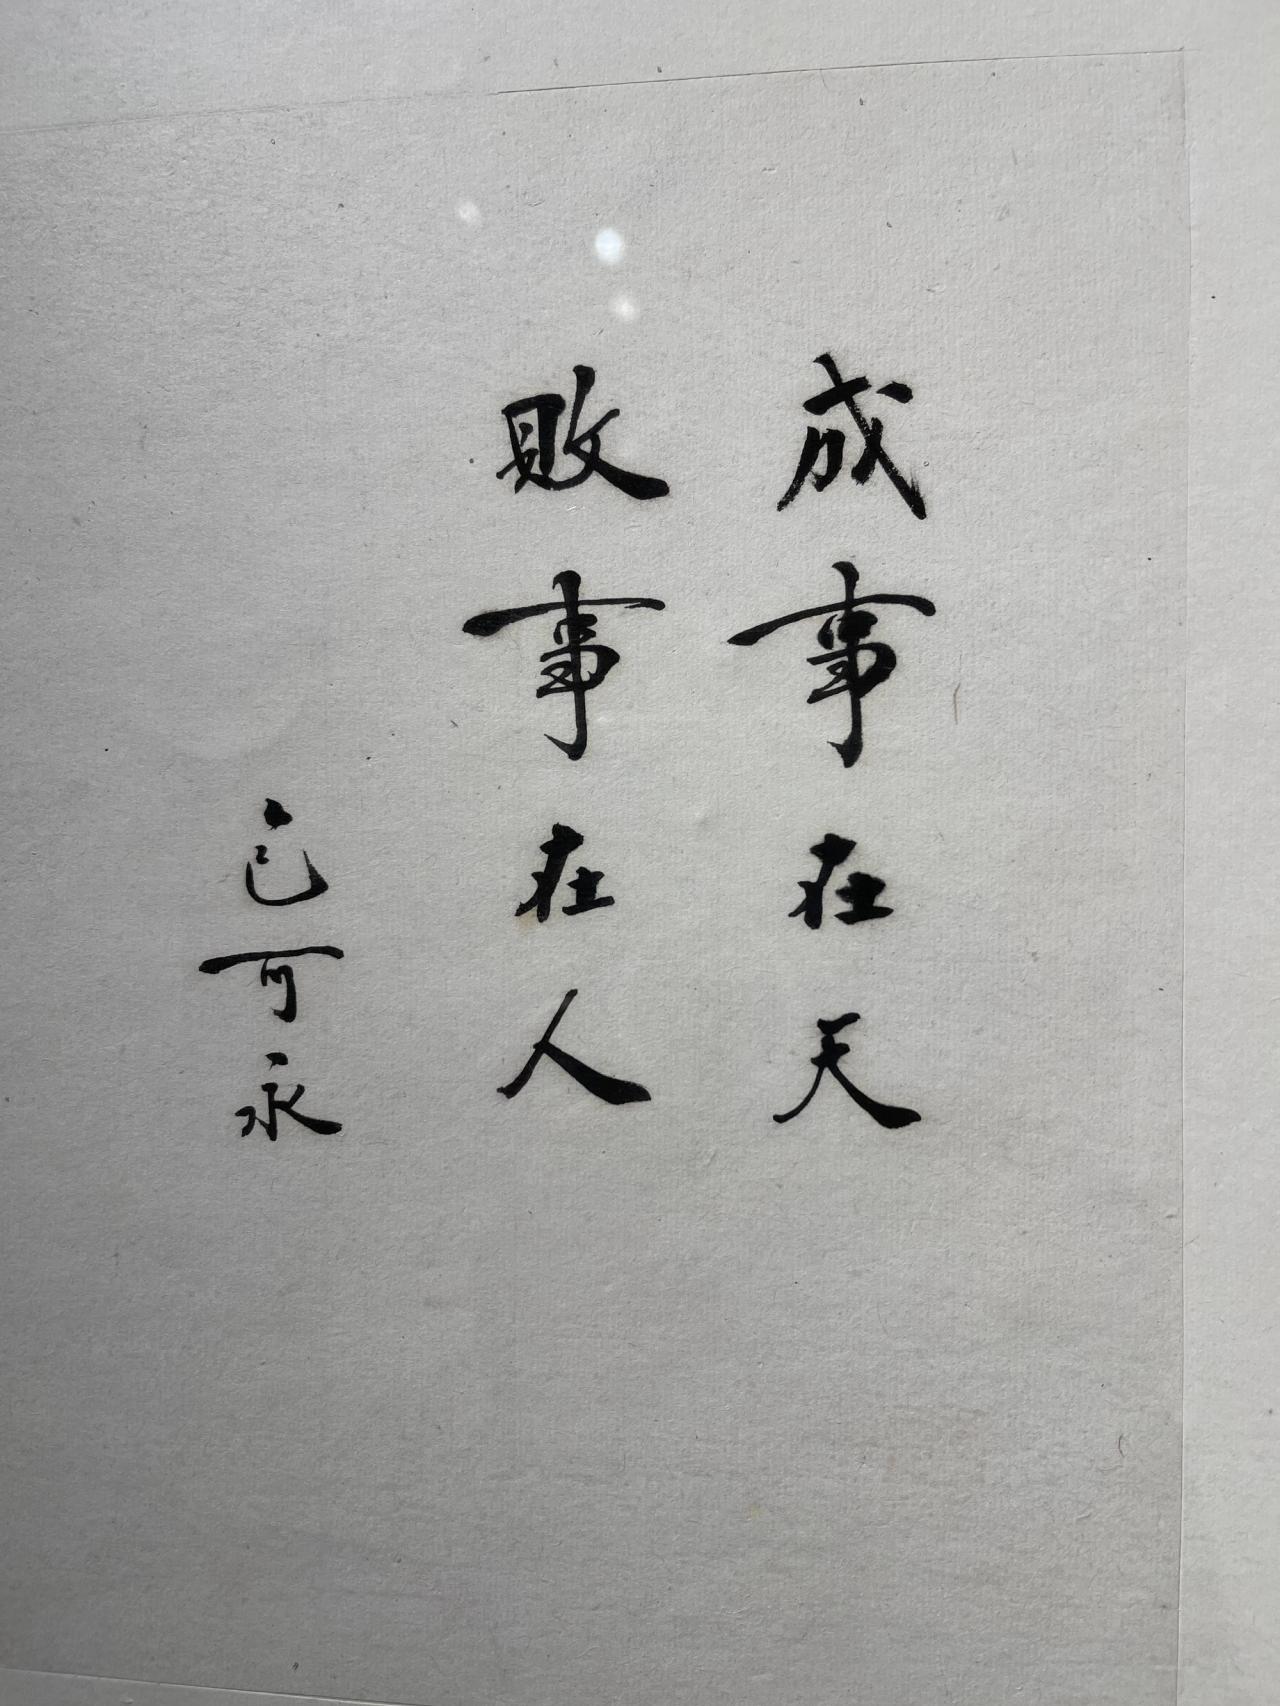 成事在天
敗事在人
可永